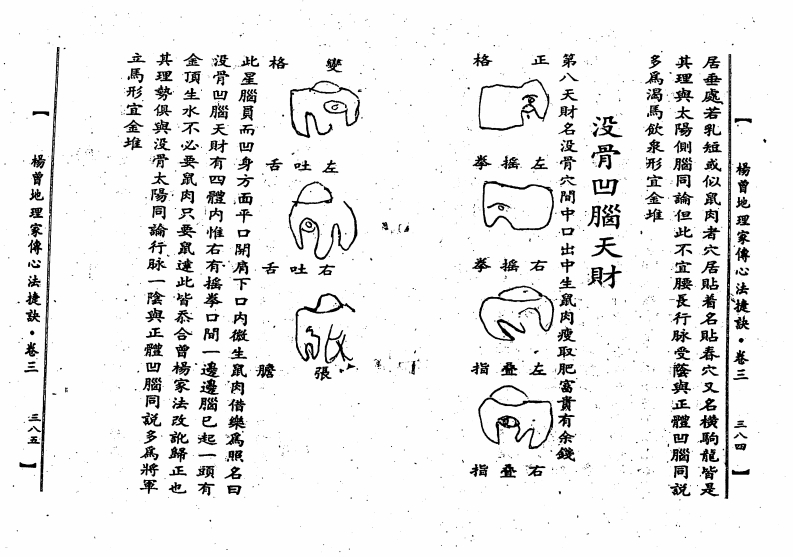 居垂處若乳短或似鼠肉者穴居貼着名貼春穴又名橫駒龍皆是
其理與太陽側腦同論但此不宜腰長行脉受蔭與正體凹腦同說
多爲渴馬飲泉形宜金堆
没骨凹腦天財
第八天財名没骨穴間中口出中生鼠肉瘦取肥富貴有余錢
正格
左摇拳
右摇拳
左叠指
右叠指
【楊曾地理家傳心法捷訣·卷三 三八四】
變格
左吐舌
右吐舌
張膽
此星腦員而凹身方面平口開肩下口内微生鼠肉借樂爲照名曰
没骨凹腦天財有四體内惟右有摇拳口間一邊邊腦已起一頭有
金頂生水不必要鼠肉只要氣達此皆忝合曾楊家法改訛歸正也
其理勢俱與没骨太陽同論行脉一陰與正體凹腦同説多爲將軍
立馬形宜金堆
【楊曾地理家傳心法捷訣·卷三 三八五】